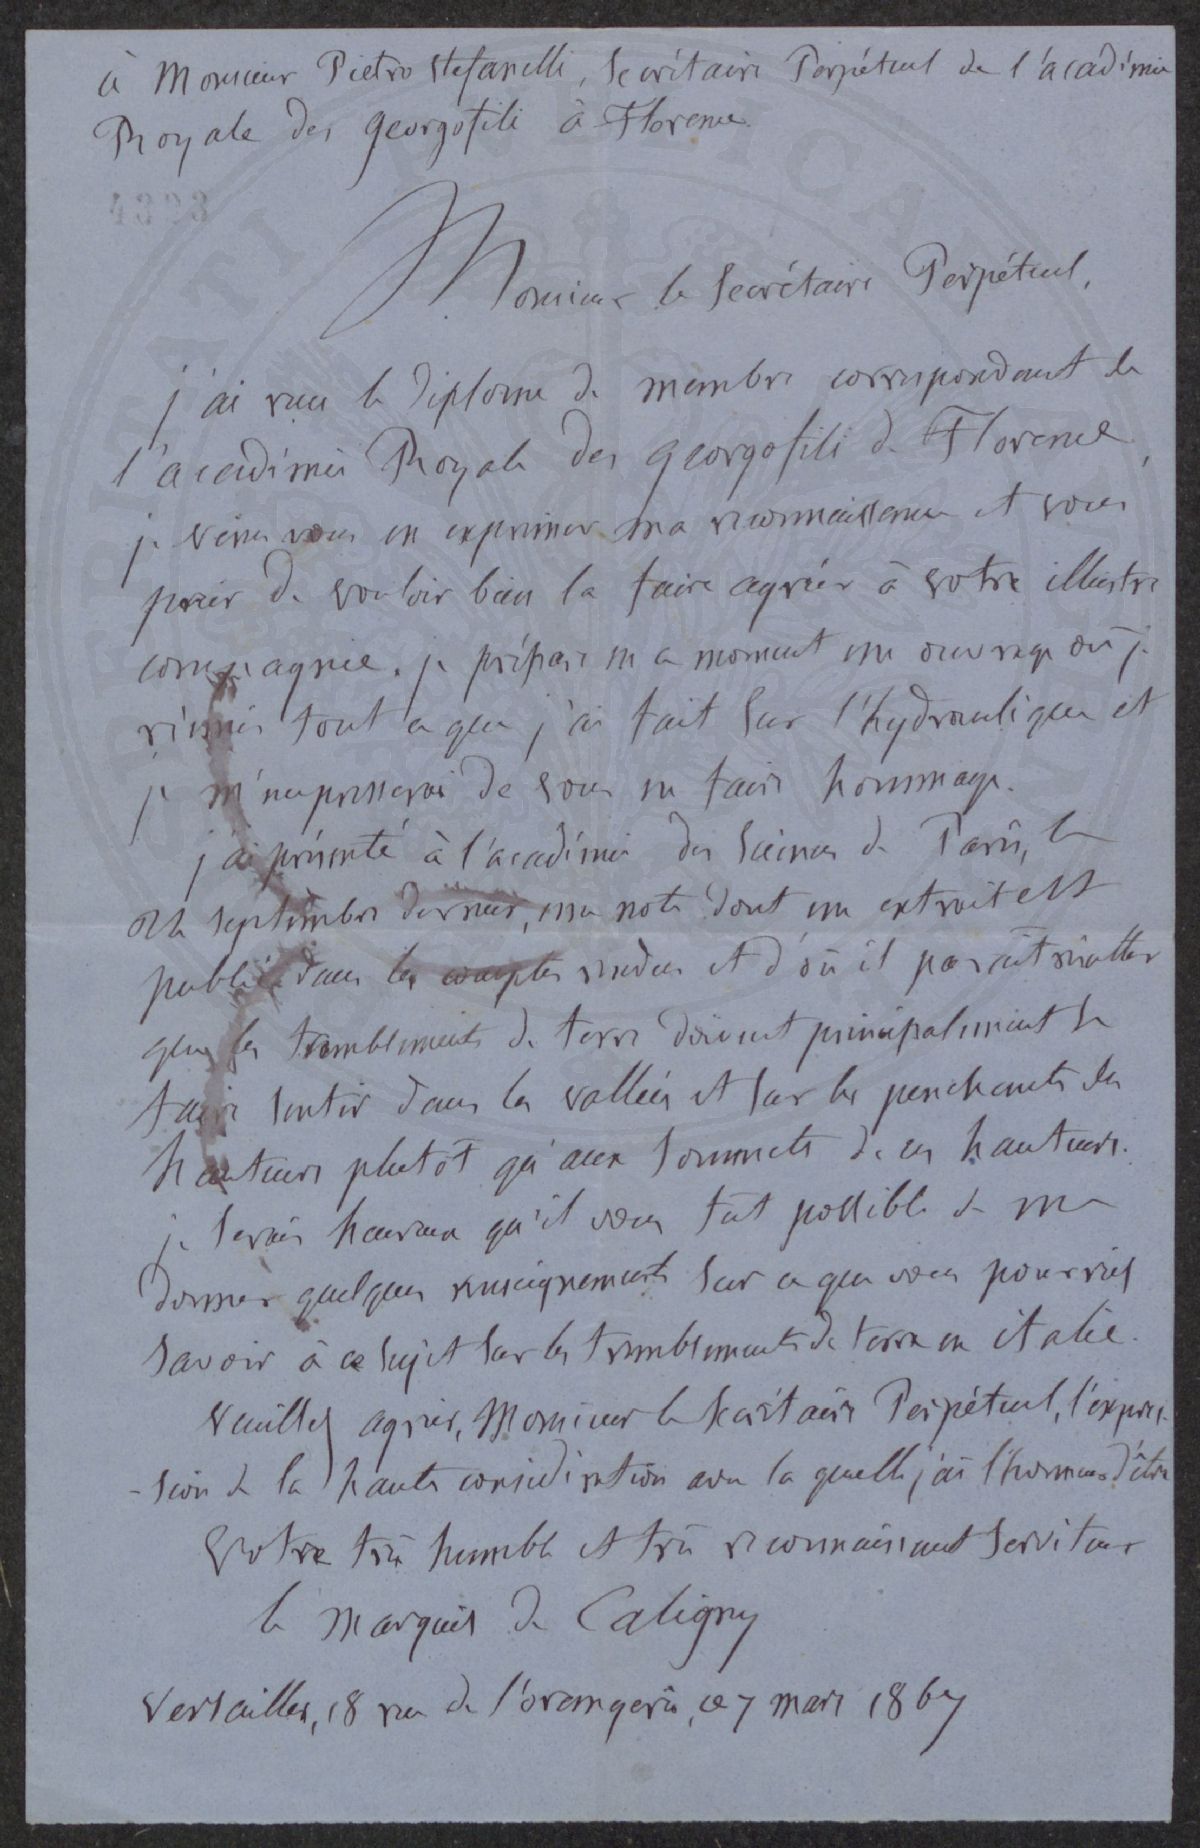 à Monsieur Pietro Stefanelli, Secrétaire Perpétuel de l'académie
Royale des georgofili à Florence.
Monsieur le Secrétaire Perpétuel,
j'ai reçu le diplome de membre correspondant de
l'académie Royale des georgofili de Florence,
je viens vous en exprimer ma reconnaissance et vous
prier de vouloir bien la faire agréer à votre illustre
compagnie. je prépare en ce moment un ouvrage où je
réunis tout ce que j'ai fait sur l'hydraulique et
je m'empresserai de vous en faire hommage.
j'ai présenté à l'académie des Sciences de Paris, le
septembre dernier, une note dont un extrait est
publié dans les comptes rendus et d'où il paraît résulter
que les tremblements de terre doivent principalement se
faire sentir dans les vallées et sur les penchants des
hauteurs plutôt qu'aux sommets de ces hauteurs.
je serais heureux qu'il vous fût possible de me
donner quelques renseignements sur ce que vous pourriez
savoir à ce sujet sur les tremblements de terre en italie.
Veuillez agréer, Monsieur le Secrétaire Perpétuel, l'expres-
-sion de la haute considération avec la quelle j'ai l'honneur d'être
Votre très humble et très reconnaissant Serviteur
le Marquis de Caligny
Versailles, 18 rue de l'orangerie, ce 7 mars 1867